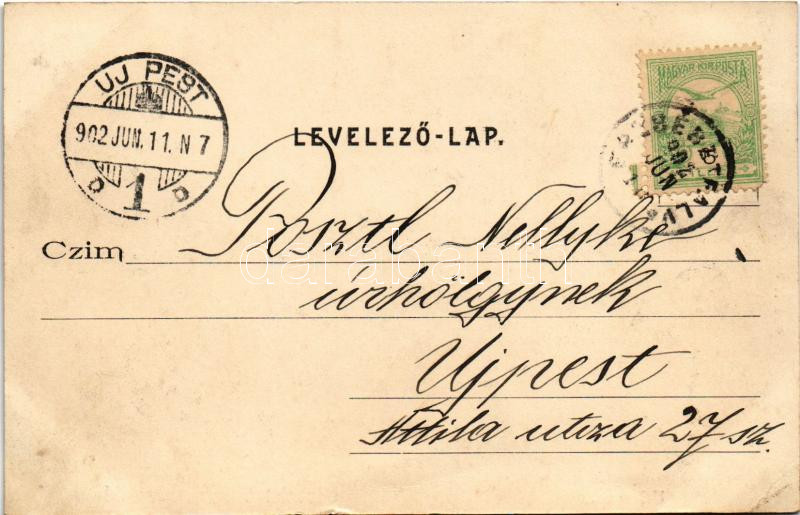 UJ PEST
902 JUN. 11. N 7
D 1 D
MAGYAR KIR. POSTA
902
JUN
LEVELEZŐ-LAP.
Czim Posztl Nellyke
úrhölgynek
Ujpest
Attila utcza 27 sz.
darabanth